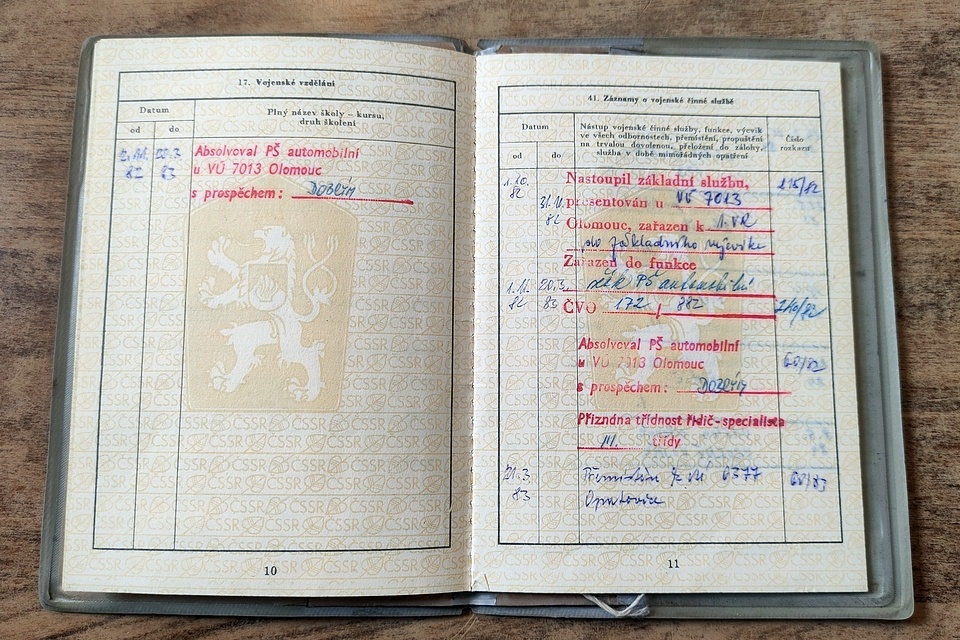 17. Vojenské vzdělání
Datum
Plný název školy – kursu,
druh školení
od do
82 83
Absolvoval PŠ automobilní
u VÚ 7013 Olomouc
s prospěchem: DOBRÝM
10
41. Záznamy o vojenské činné službě
Datum
Nástup vojenské činné služby, funkce, výcvik
ve všech odbornostech, přemístění, propuštění
na trvalou dovolenou, přeložení do zálohy,
služba v době mimořádných opatření
Číslo
rozkazu
od do
1.10.
82
Nastoupil základní službu,
presentován u VÚ 7013
Olomouc, zařazen k 1. VR
do základního výcviku
Zařazen do funkce
žák PŠ automobilní
1.11. 20.3.
82 83
ČVO 172 / 882
Absolvoval PŠ automobilní
u VÚ 7013 Olomouc
s prospěchem: DOBRÝM
Přiznána třídnost řidič-specialista
III. třídy
21.3.
83
Přemístěn k VÚ 0377
Opatovice
11